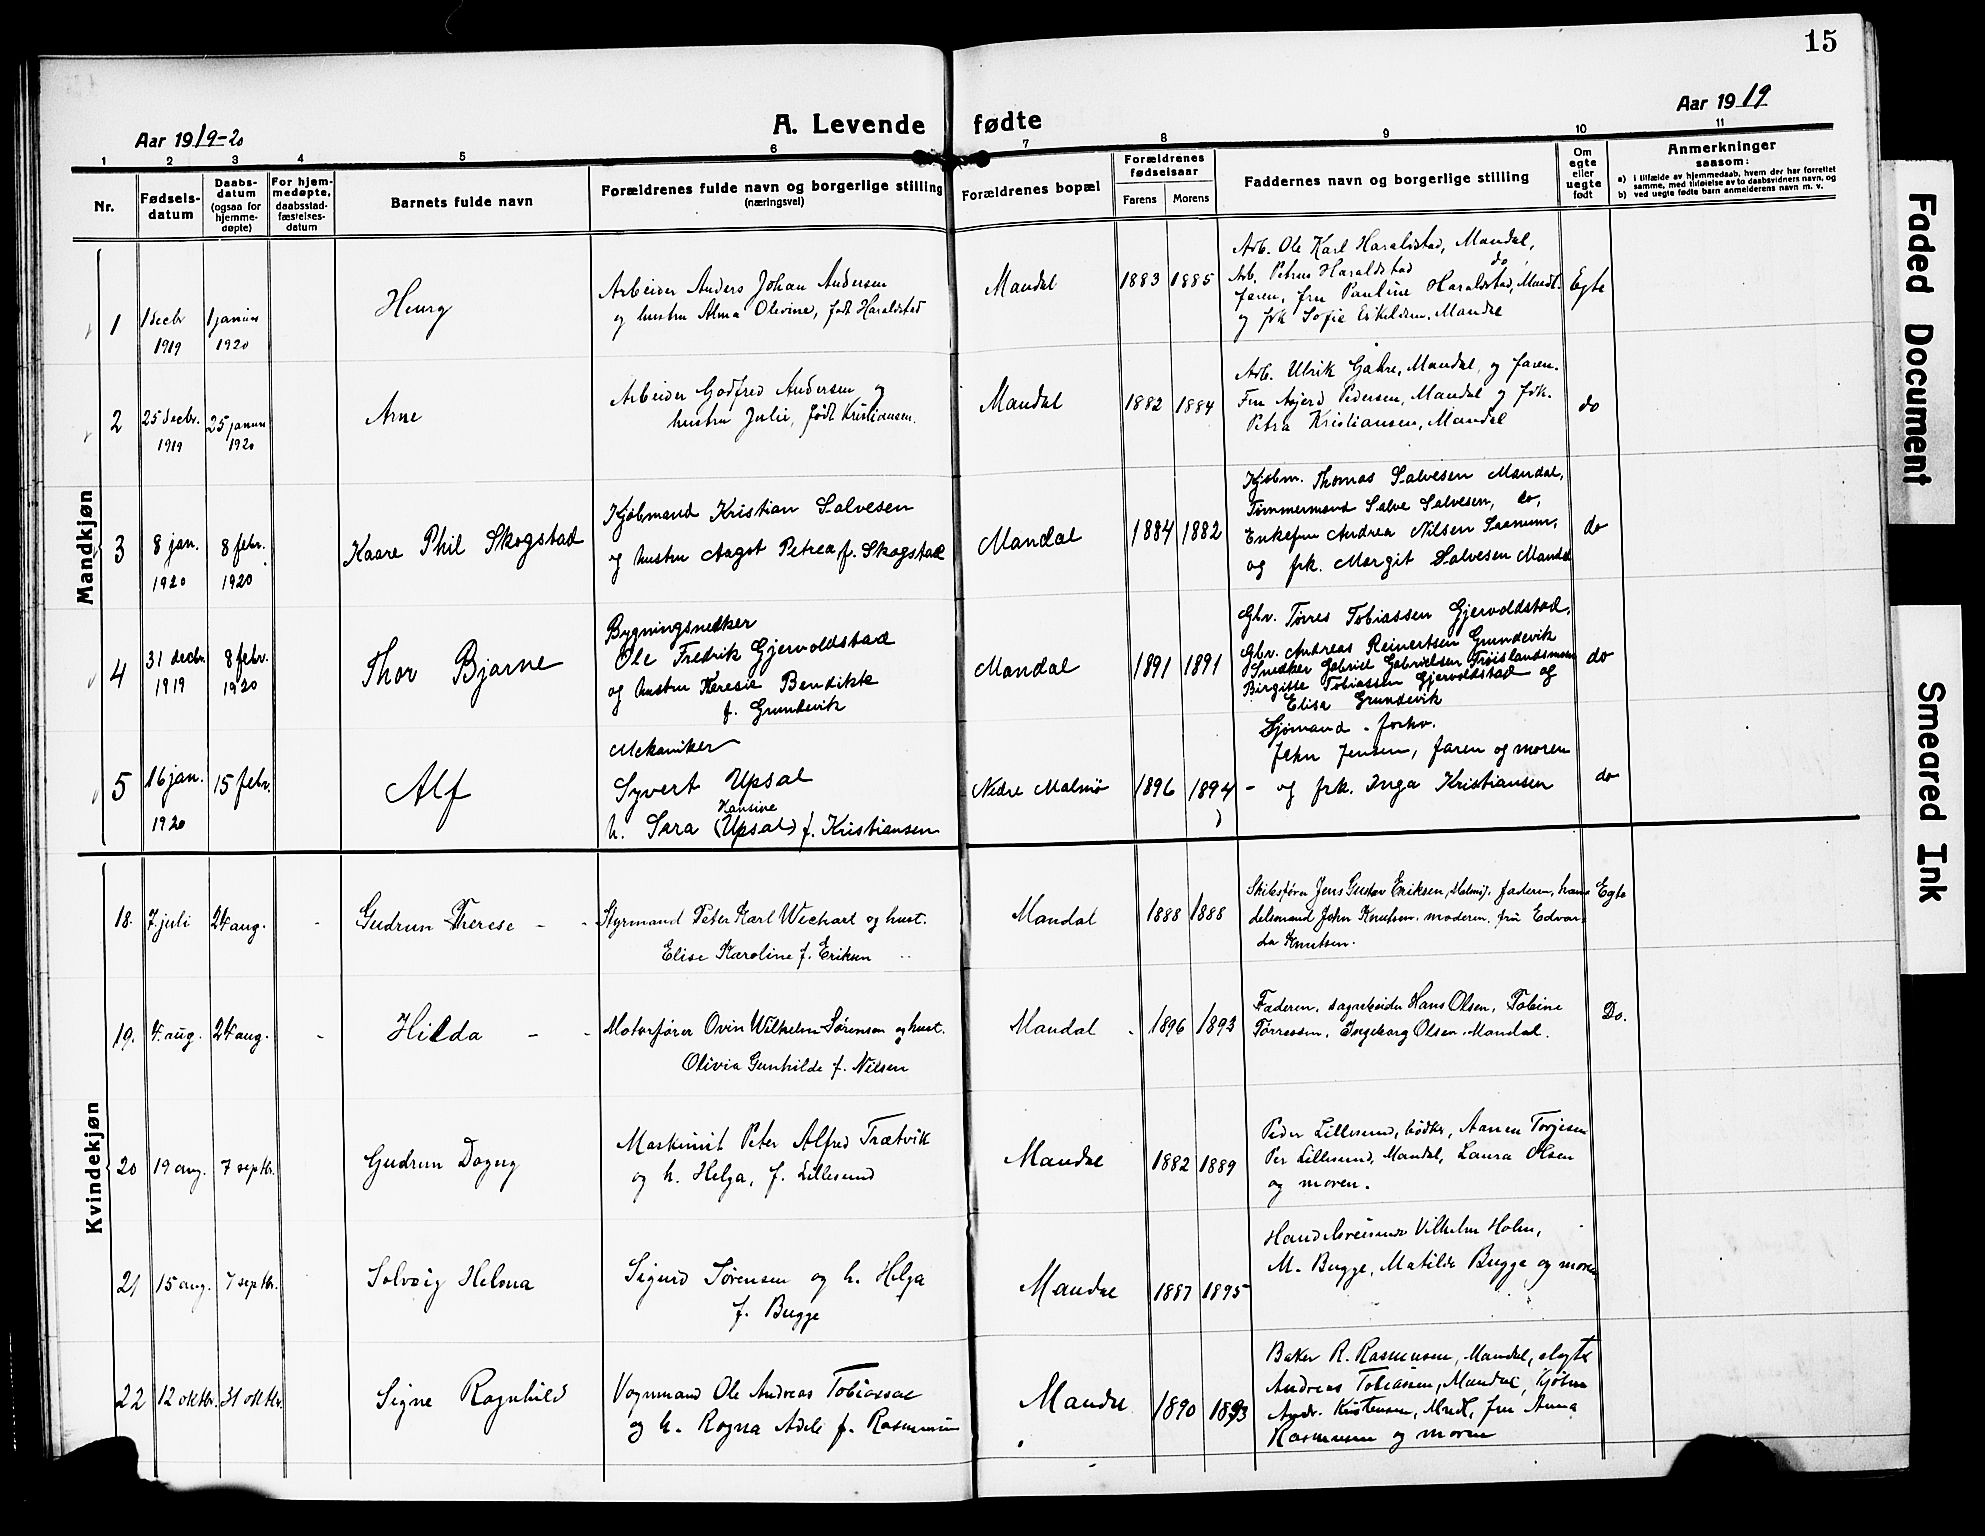 15
Aar 1919-20
A. Levende fødte
Aar 1919
1 2 3 4 5 6 7 8 9 10 11
Nr.
Fødsels-
datum
Daabs-
datum
(ogsaa for
hjemme-
døpte)
For hjem-
medøpte,
daabsstad-
fæstelses-
datum
Barnets fulde navn
Forældrenes fulde navn og borgerlige stilling
(næringsvei)
Forældrenes bopæl
Forældrenes
fødselsaar
Farens Morens
Faddernes navn og borgerlige stilling
Om
egte
eller
uegte
født
Anmerkninger
saasom:
a) i tilfælde av hjemmedaab, hvem der har forrettet
samme, med tilføielse av to daabsvidners navn, og
b) ved uegte fødte barn anmelderens navn m. v.
Mandkjøn
1
1 decbr
1919
1 januar
1920
Henry
Arbeider Anders Johan Andersen
og hustru Alma Olevine, født Haraldstad
Mandal
1883 1885
Arb. Ole Karl Haraldstad, Mandal,
Arb. Petrus Haraldstad do,
faren, fru Pauline Haraldstad, Mandl.
og frk Sofie Eskildsen, Mandal
Egte
2
25 decbr.
1919
25 januar
1920
Arne
Arbeider Godfred Andersen og
hustru Julie, født Kristiansen.
Mandal
1882 1884
Arb. Ulrik Gahre, Mandal, og faren.
Fru Asjerd Pedersen, Mandal og frk.
Petra Kristiansen, Mandal
do
3
8 jan.
1920
8 febr.
1920
Kaare Phil Skogstad
Kjøbmand Kristian Salvesen
og hustru Aagot Petrea, f. Skogstad
Mandal
1884 1882
Kjøbm. Thomas Salvesen Mandal,
Tømmermand Salve Salvesen, do,
Enkefru Andrea Nilsen Saanum,
og frk. Margit Salvesen Mandal
do
4
31 decbr.
1919
8 febr.
1920
Thor Bjarne
Bygningsnedker
Ole Fredrik Gjervoldstad
og hustru Teresie Bendikte
f. Grundevik
Mandal
1891 1891
Gbr. Tørres Tobiassen Gjervoldstad,
Gbr. Andreas Reinertsen Grundevik
Snedker Gabriel Gabrielsen Frøislandsmoen
Birgitte Tobiassen Gjervoldstad og
Elisa Grundevik
do
5
16 jan.
1920
15 febr.
Alf
Mekaniker
Syvert Upsal
Hansine
h. Sara (Upsal) f. Kristiansen
Nedre Malmø
1896 1894
Sjømand - forhv.
John Jensen, faren og moren
- og frk. Inga Kristiansen
do
Kvindekjøn
18.
7. juli
24 aug.
-
Gudrun Therese - -
Styrmand Peter Karl Wechart og hust.
Elise Karoline f. Eriksen
Mandal
1888 1888
Skibsfører Jens Gustav Eriksen, Malmø, faderen, han-
delsmand John Knutsen. moderen, fru Edvar-
da Knutsen.
Egte
19.
4. aug.
24 aug.
-
Hilda - -
Motorfører Ovin Wilhelm Sørensen og hust.
Olivia Gunhilde f. Nilsen
Mandal
1896 1893
Faderen, dagarbeider Hans Olsen, Tobine
Tørressen, Ingeborg Olsen. Mandal.
Do.
20
19 aug.
7 septbr.
Gudrun Dagny
Maskinist Peter Alfred Trætvik
og h. Helga, f. Lillesund
Mandal
1882 1889
Peder Lillesund, bødker, Aanen Torjesen
Per Lillesund, Mandal, Laura Olsen
og moren.
21
15 aug.
7 septbr.
Solveig Helma
Sigurd Sørensen og h. Helga
f. Bugge
Mandal
1887 1895
Handelsreisende Vilhelm Holm,
M. Bugge, Matilde Bugge og moren
22
12 oktbr.
31 oktbr.
Signe Ragnhild
Vognmand Ole Andreas Tobiassen
og h. Ragna Adele f. Rasmussen
Mandal
1890 1893
Baker R. Rasmussen, Mandal,
Andreas Tobiassen, Mandal, Kjøbm
Andr. Kristensen, Mndl, fru Anna
Rasmussen og moren
Faded Document
Smeared Ink